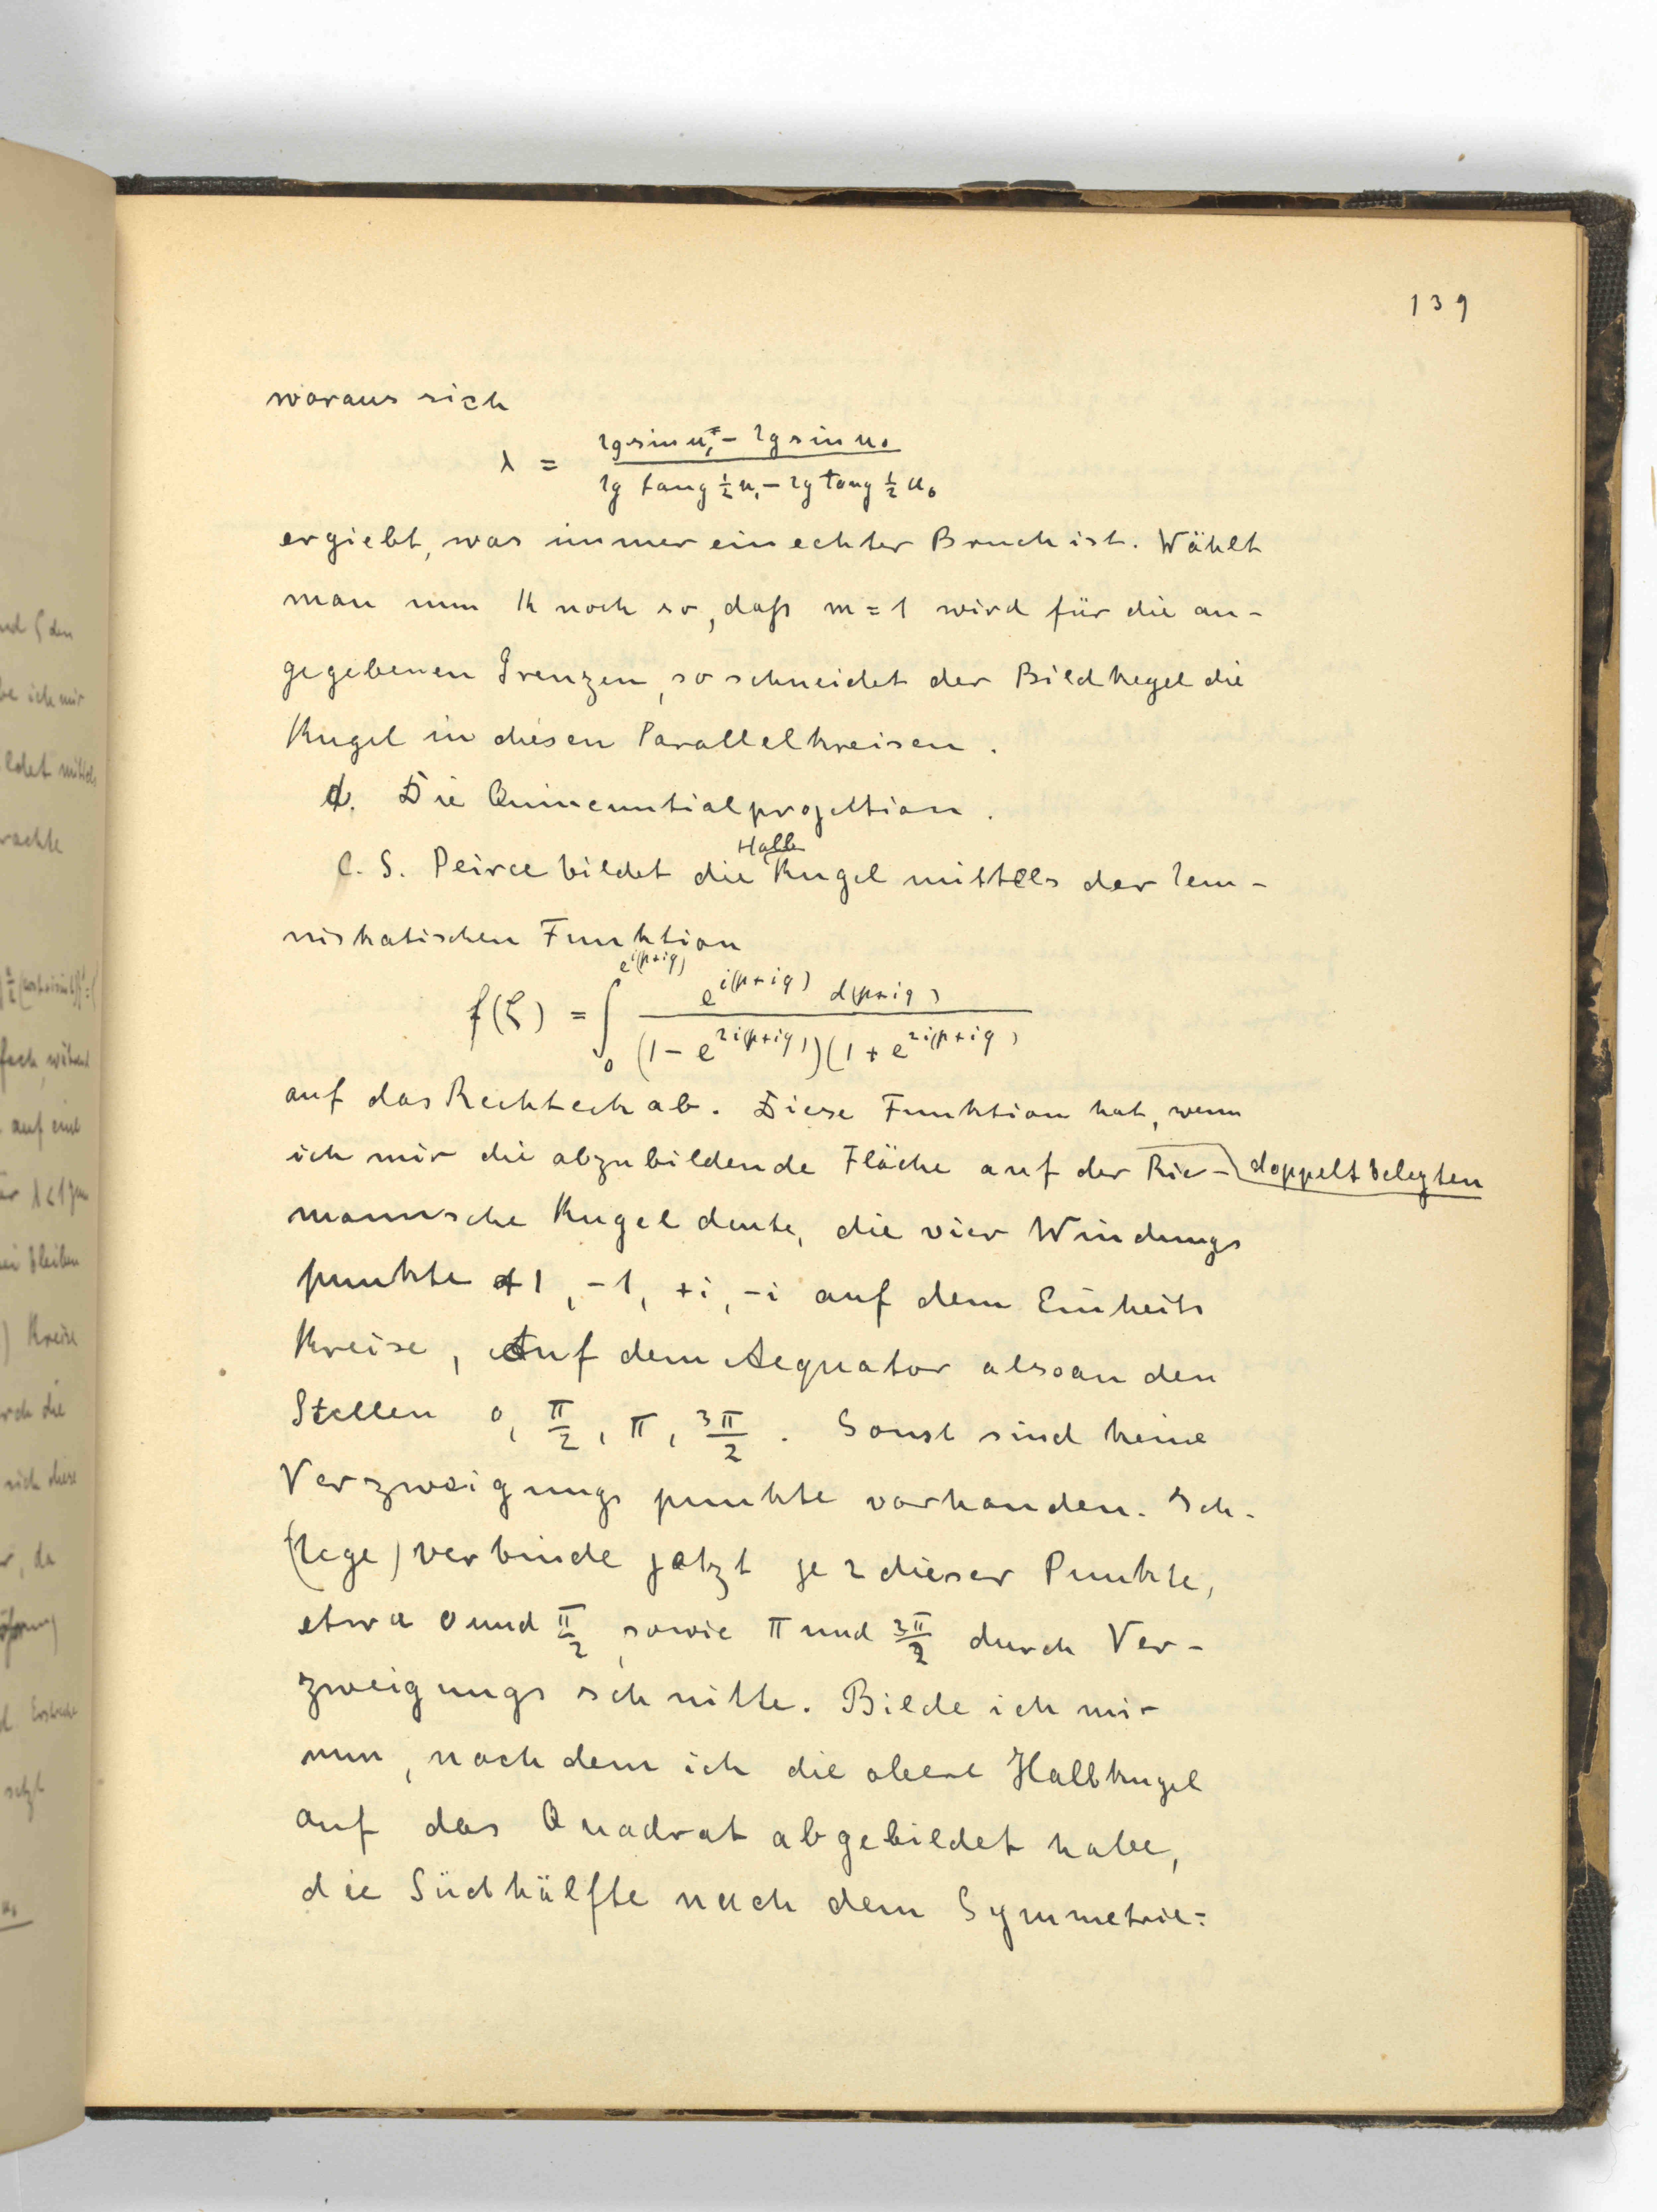 139
woraus sich
λ = (lg sin u₁ - lg sin u₀) / (lg tang ½ u₁ - lg tang ½ u₀)
ergiebt, was immer ein echter Bruch ist. Wählt
man nun k noch so, daß m = 1 wird für die an-
gegebenen Grenzen, so schneidet der Bildkegel die
Kugel in diesen Parallelkreisen.
d. Die Quincuntialprojektion.
Halb
C. S. Peirce bildet die Kugel mittels der lem-
niskatischen Funktion
f(ζ) = ∫₀^{e^{i(p+iq)}} e^{i(p+iq)} d(p+iq) / (1 - e^{2i(p+iq)})(1 + e^{2i(p+iq)})
auf das Rechteck ab. Diese Funktion hat, wenn
ich mir die abzubildende Fläche auf der Rie- doppelt belegten
mannsche Kugel deute, die vier Windungs
punkte +1, -1, +i, -i auf dem Einheits
kreise, auf dem Aequator also an den
Stellen 0, π/2, π, 3π/2. Sonst sind keine
Verzweigungs punkte vorhanden. Ich
(lege) verbinde jetzt je 2 dieser Punkte,
etwa 0 und π/2, sowie π und 3π/2 durch Ver-
zweigungs schnitte. Bilde ich mir
nun, nach dem ich die obere Halbkugel
auf das Quadrat abgebildet habe,
die Südhälfte nach dem Symmetrie=